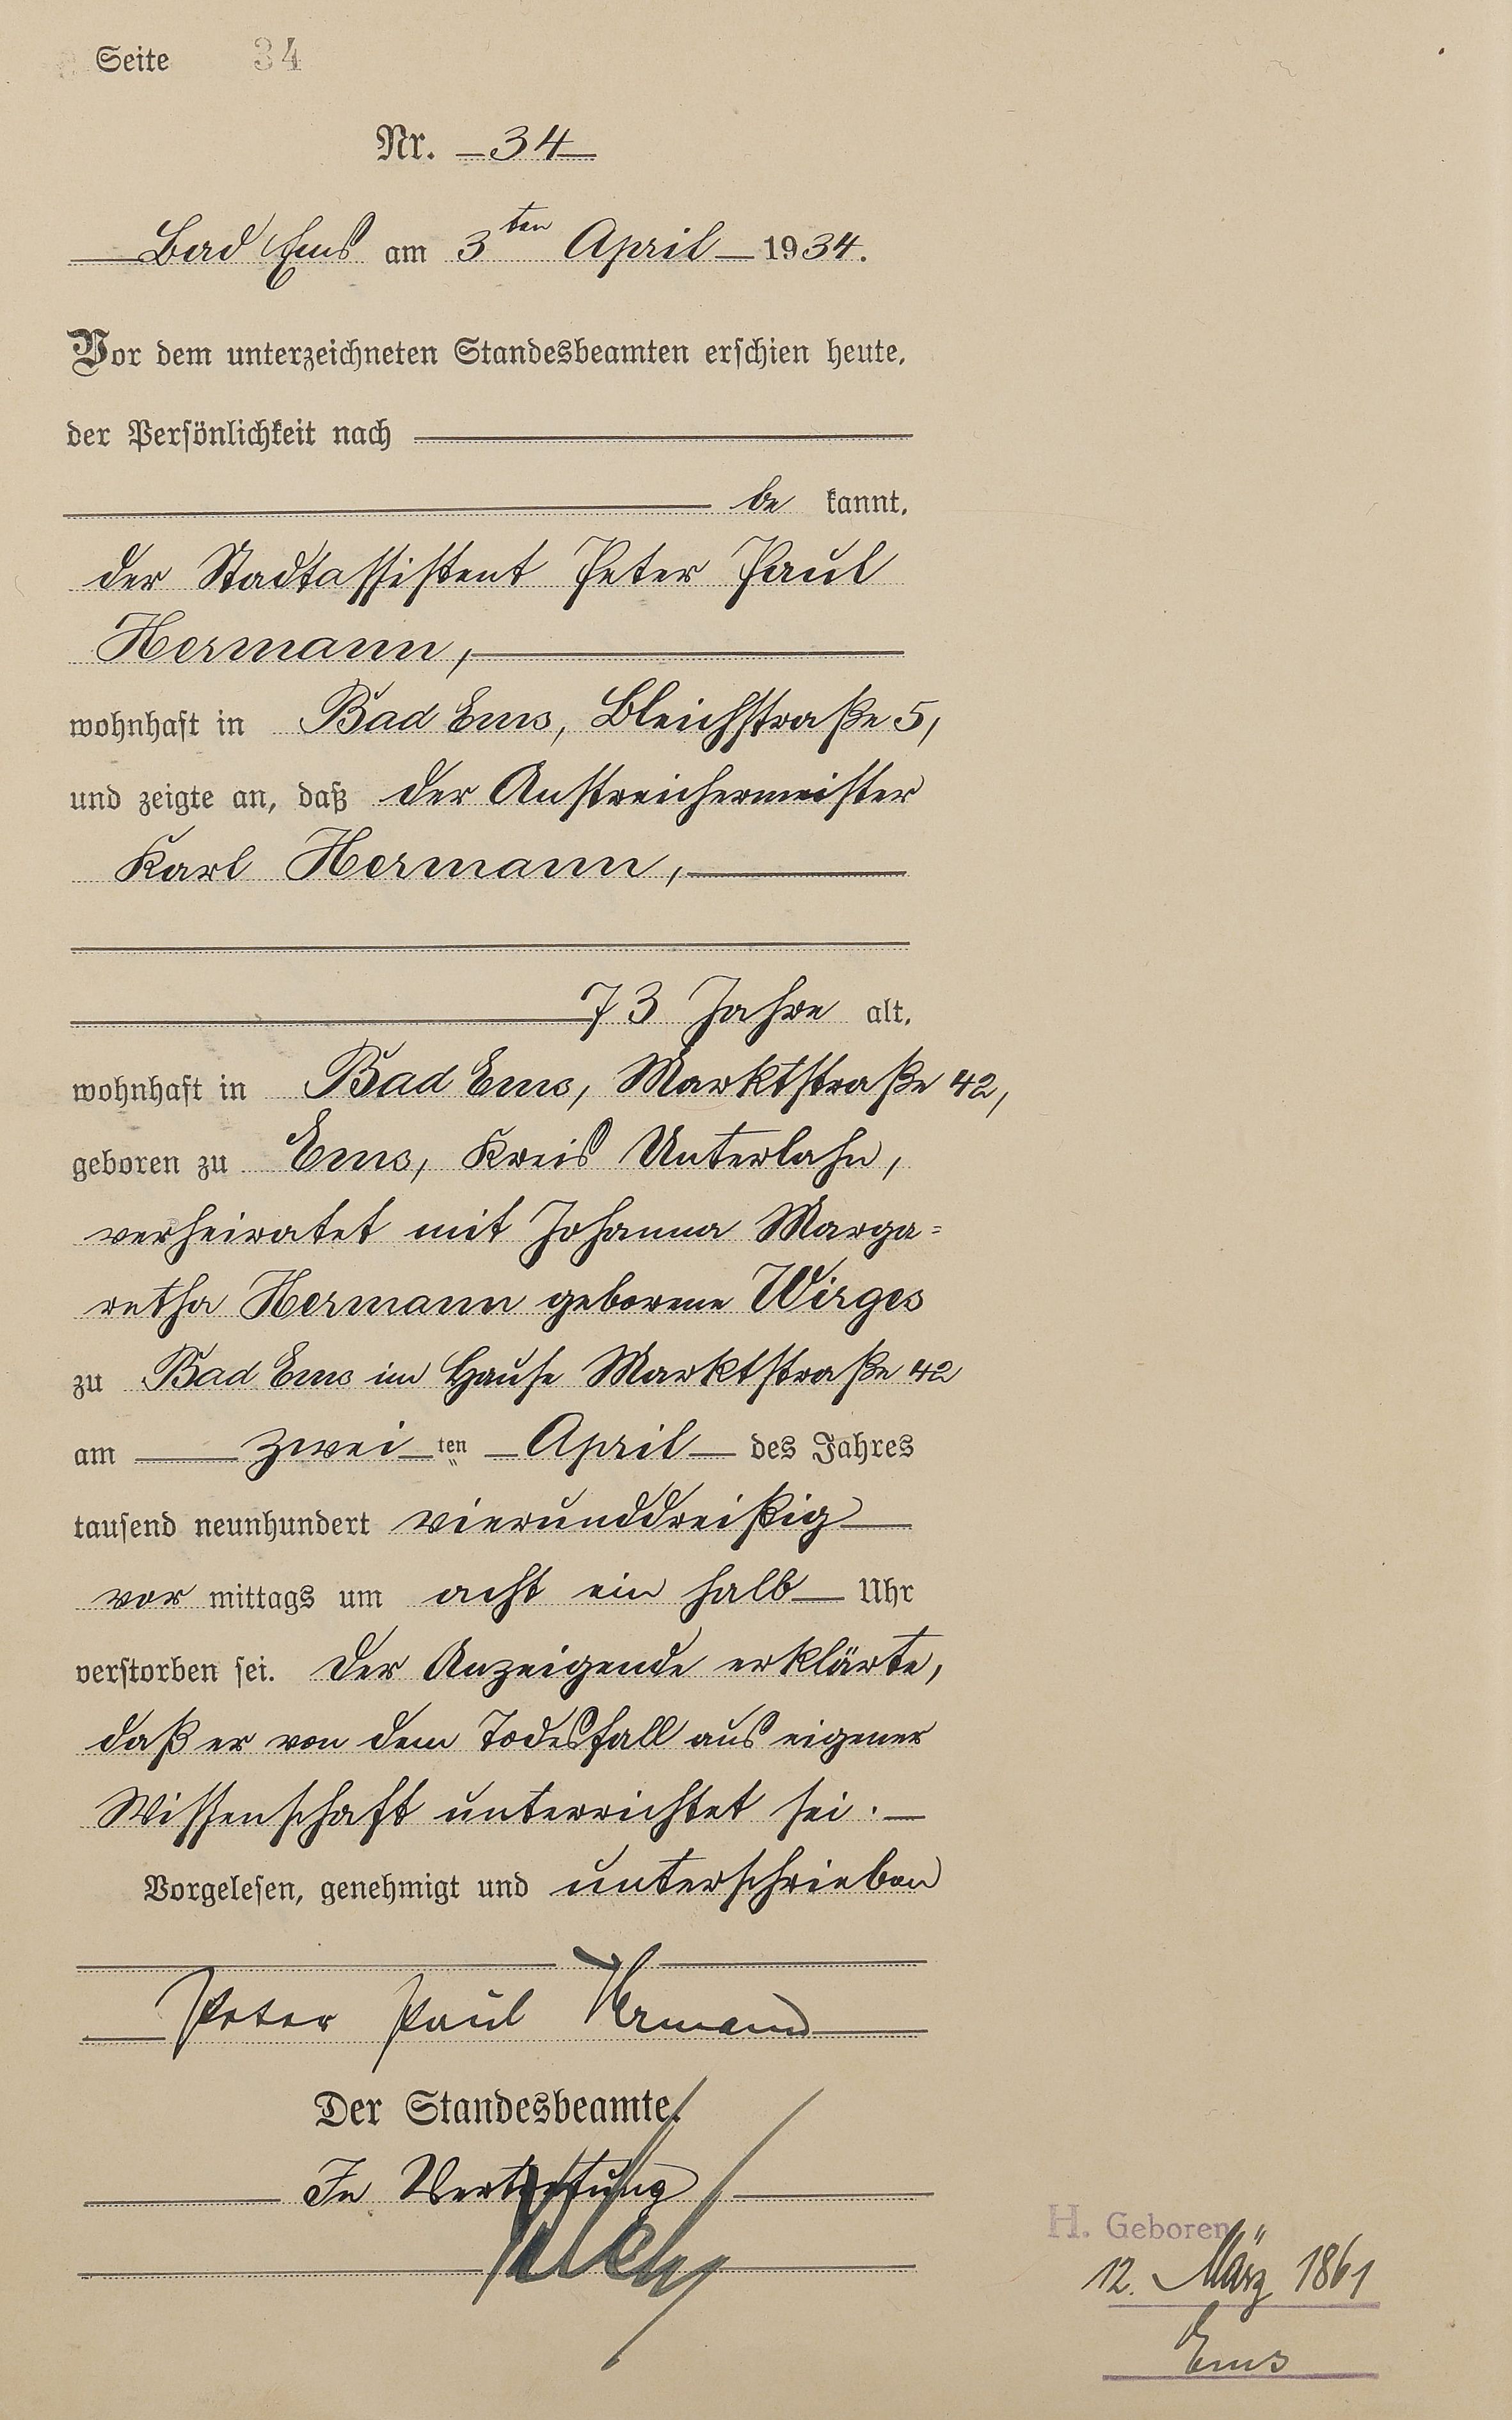 Seite 34
Nr. 34
Bad Ems am 3ten April 1934.
Vor dem unterzeichneten Standesbeamten erschien heute,
der Persönlichkeit nach
be kannt,
der Stadtassistent Peter Paul
Hermann,
wohnhaft in Bad Ems, Bleichstraße 5,
und zeigte an, daß der Anstreichermeister
Karl Hermann,
73 Jahre alt,
wohnhaft in Bad Ems, Marktstraße 42,
geboren zu Ems, Kreis Unterlahn,
verheiratet mit Johanna Marga=
retha Hermann geborene Wirges
zu Bad Ems im Hause Marktstraße 42
am zwei ten April des Jahres
tausend neunhundert vierunddreißig
vor mittags um acht ein halb Uhr
verstorben sei. Der Anzeigende erklärte,
daß er von dem Todesfall aus eigener
Wissenschaft unterrichtet sei.
Vorgelesen, genehmigt und unterschrieben
Peter Paul Hermann
Der Standesbeamte.
In Vertretung
H. Geboren
12. März 1861
Ems